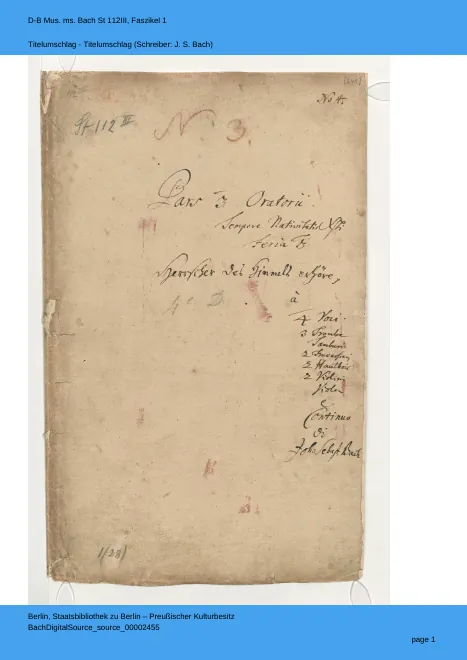 D-B Mus. ms. Bach St 112III, Faszikel 1
Titelumschlag - Titelumschlag (Schreiber: J. S. Bach)
No 4.
St 112 III
N. 3.
Pars 3 Oratorii
Tempore Nativitatis Xsti
Feria 3
Herrscher des Himmels erhöre,
à
4 Voci
3 Trombe
Tamburi
2
2 Hautbois
2 Violini
Viola
e
Continuo
di
Joh. Sebast. Bach
1(28)
Berlin, Staatsbibliothek zu Berlin – Preußischer Kulturbesitz
BachDigitalSource_source_00002455
page 1